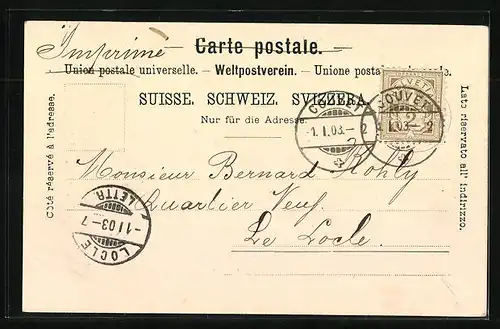 Imprimé
Carte postale.
Union postale universelle. – Weltpostverein. – Unione postale universale.
SUISSE. SCHWEIZ. SVIZZERA.
Nur für die Adresse.
Côté réservé à l'adresse.
Lato riservato all' indirizzo.
COUVET
-1. I. 03. – 2
HELVETIA
COUVET
1. I. 03. – 2
Monsieur Bernard Kohly
Quartier Neuf.
Le Locle.
LETTR.
-1 I 03 – 7
LOCLE